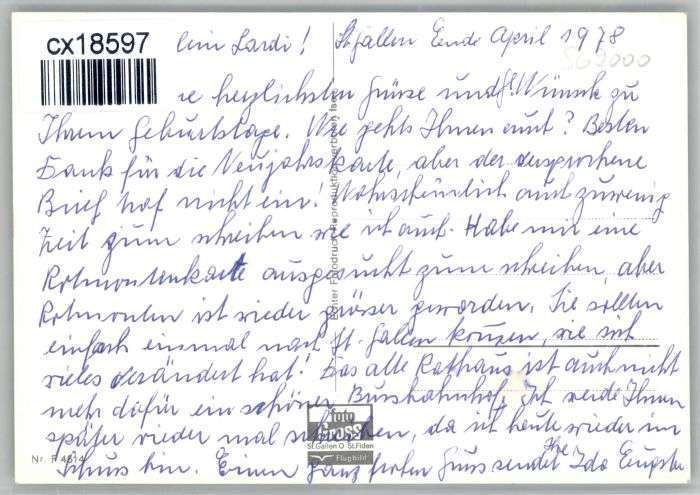 cx18597
lein Lardi! St. Gallen Ende April 1978
569000
re herzlichsten Grüsse und Wünsche zu
Ihrem Geburtstage. Wie gehts Ihnen auch? Besten
Dank für die Neujahrskarte, aber der versprochene
Brief traf nicht ein! Wahrscheinlich auch zuwenig
Zeit zum schreiben wie ich auch. Habe mir eine
Rotmontenkarte ausgesucht zum schreiben, aber
Rotmonten ist wieder grösser geworden. Sie sollten
einfach einmal nach St. Gallen kommen, wie sich
vieles verändert hat! Das alte Rathaus ist auch nicht
mehr dafür ein schöner Busbahnhof. Ich werde Ihnen
später wieder mal schreiben, da ich heute wieder im
Schuss bin. Einen ganz frohen Gruss sendet Ihre Ida Eugster
foto
GROSS
St.Gallen O St.Fiden
Flugbild
Nr. F 4614